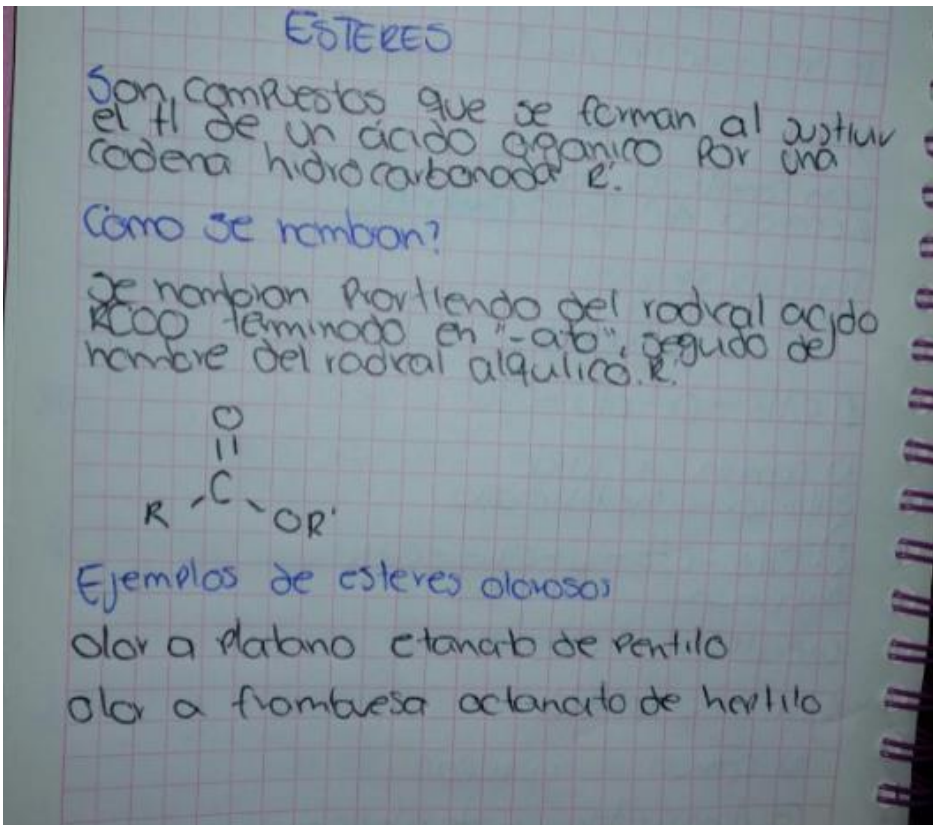 ESTERES
Son compuestos que se forman al sustiuir
el H de un ácido organico por una
cadena hidrocarbonada R'.
Como se nombran?
Se nombran Partiendo del radical acido
RCOO terminado en "-ato", seguido del
nombre del radical alquilico R.
O
C
R OR'
Ejemplos de esteres olorosos
olor a platano etanato de Pentilo
olor a frambuesa octanato de heptilo